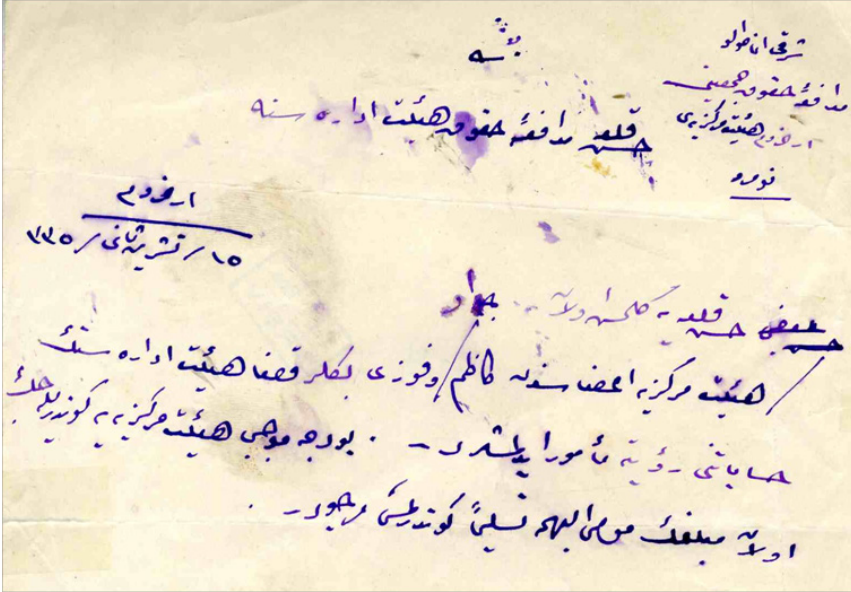 شرقی اناطولو
مدافعهٔ حقوق جمعیتی
ارضروم هیئت مركزیه‌سی
نومرو
حسن قلعه مدافعهٔ حقوق هیئت اداره سنه
ارضروم
١٥ / تشرین ثانی / ٣٣٥
حسن قلعه یه كلمش اولان
هیئت مركزیه اعضا سندن كاظم / وفوزی بكلر قضا هیئت اداره سنك
حساباتنی رؤیته مأمور ایدلمشدر . بودجه موجبی هیئت مركزیه یه كوندریله جك
اولان مبلغك مومی الیهمه تسلیماً كوندرلمسی مرجودر .